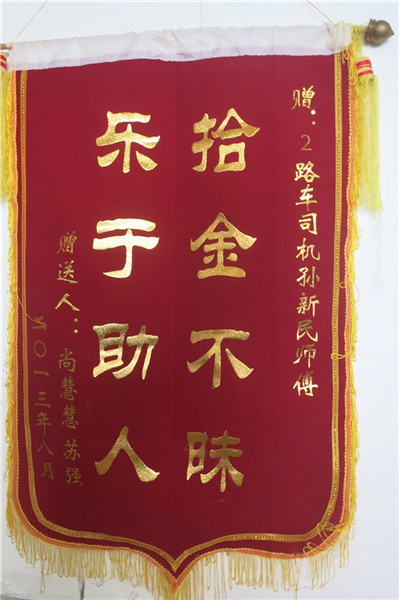 赠：2路车司机孙新民师傅
拾金不昧
乐于助人
赠送人：尚慧慧 苏强
二〇一三年八月